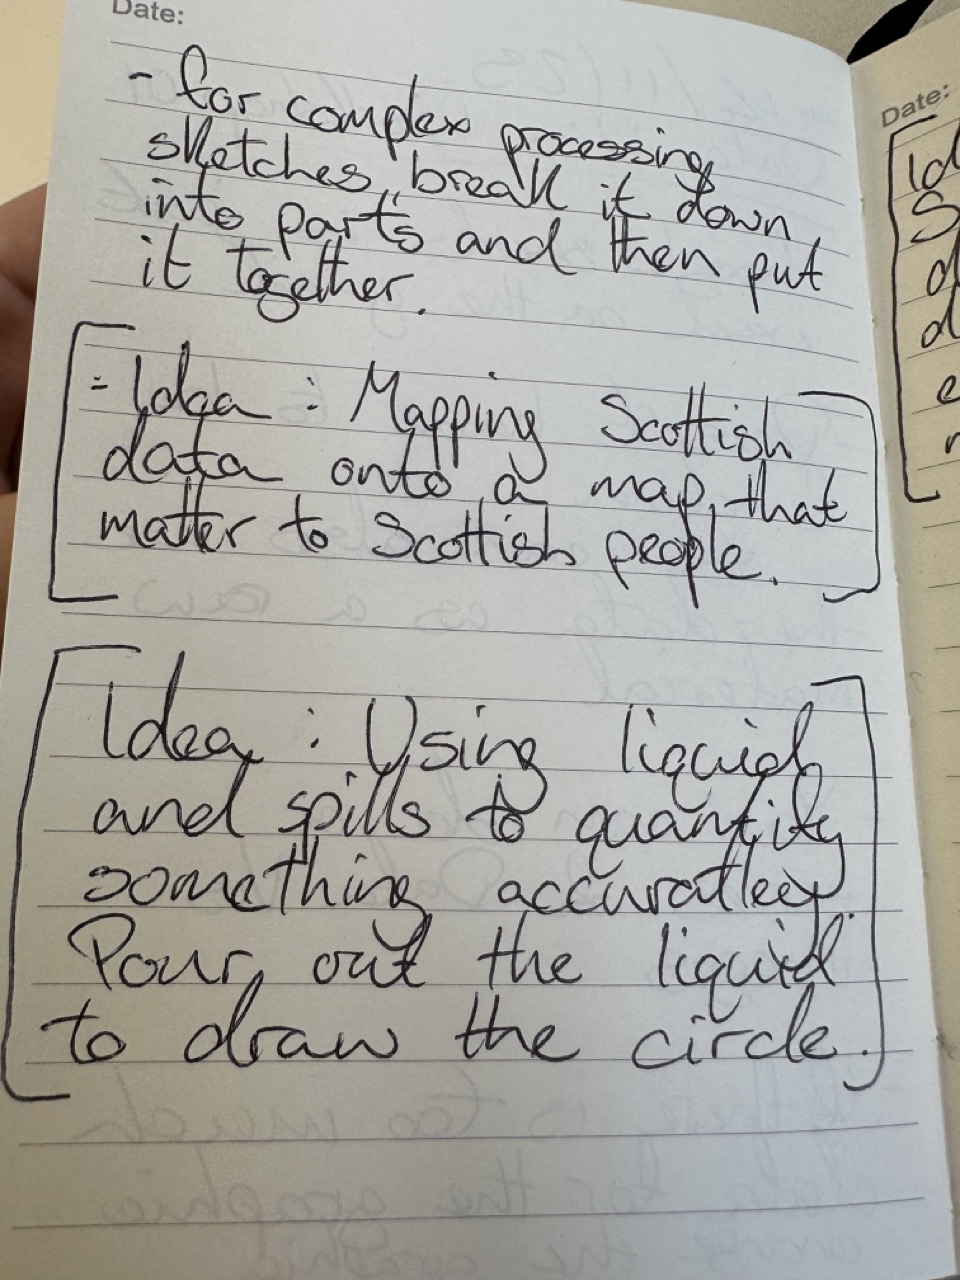 Date:
- for complex processing
sketches, break it down
into parts and then put
it together.
- Idea : Mapping Scottish
data onto a map, that
matter to Scottish people.
Idea : Using liquid
and spills to quantify
something accuratley.
Pour out the liquid
to draw the circle.
Date:
Id
S
d
d
e